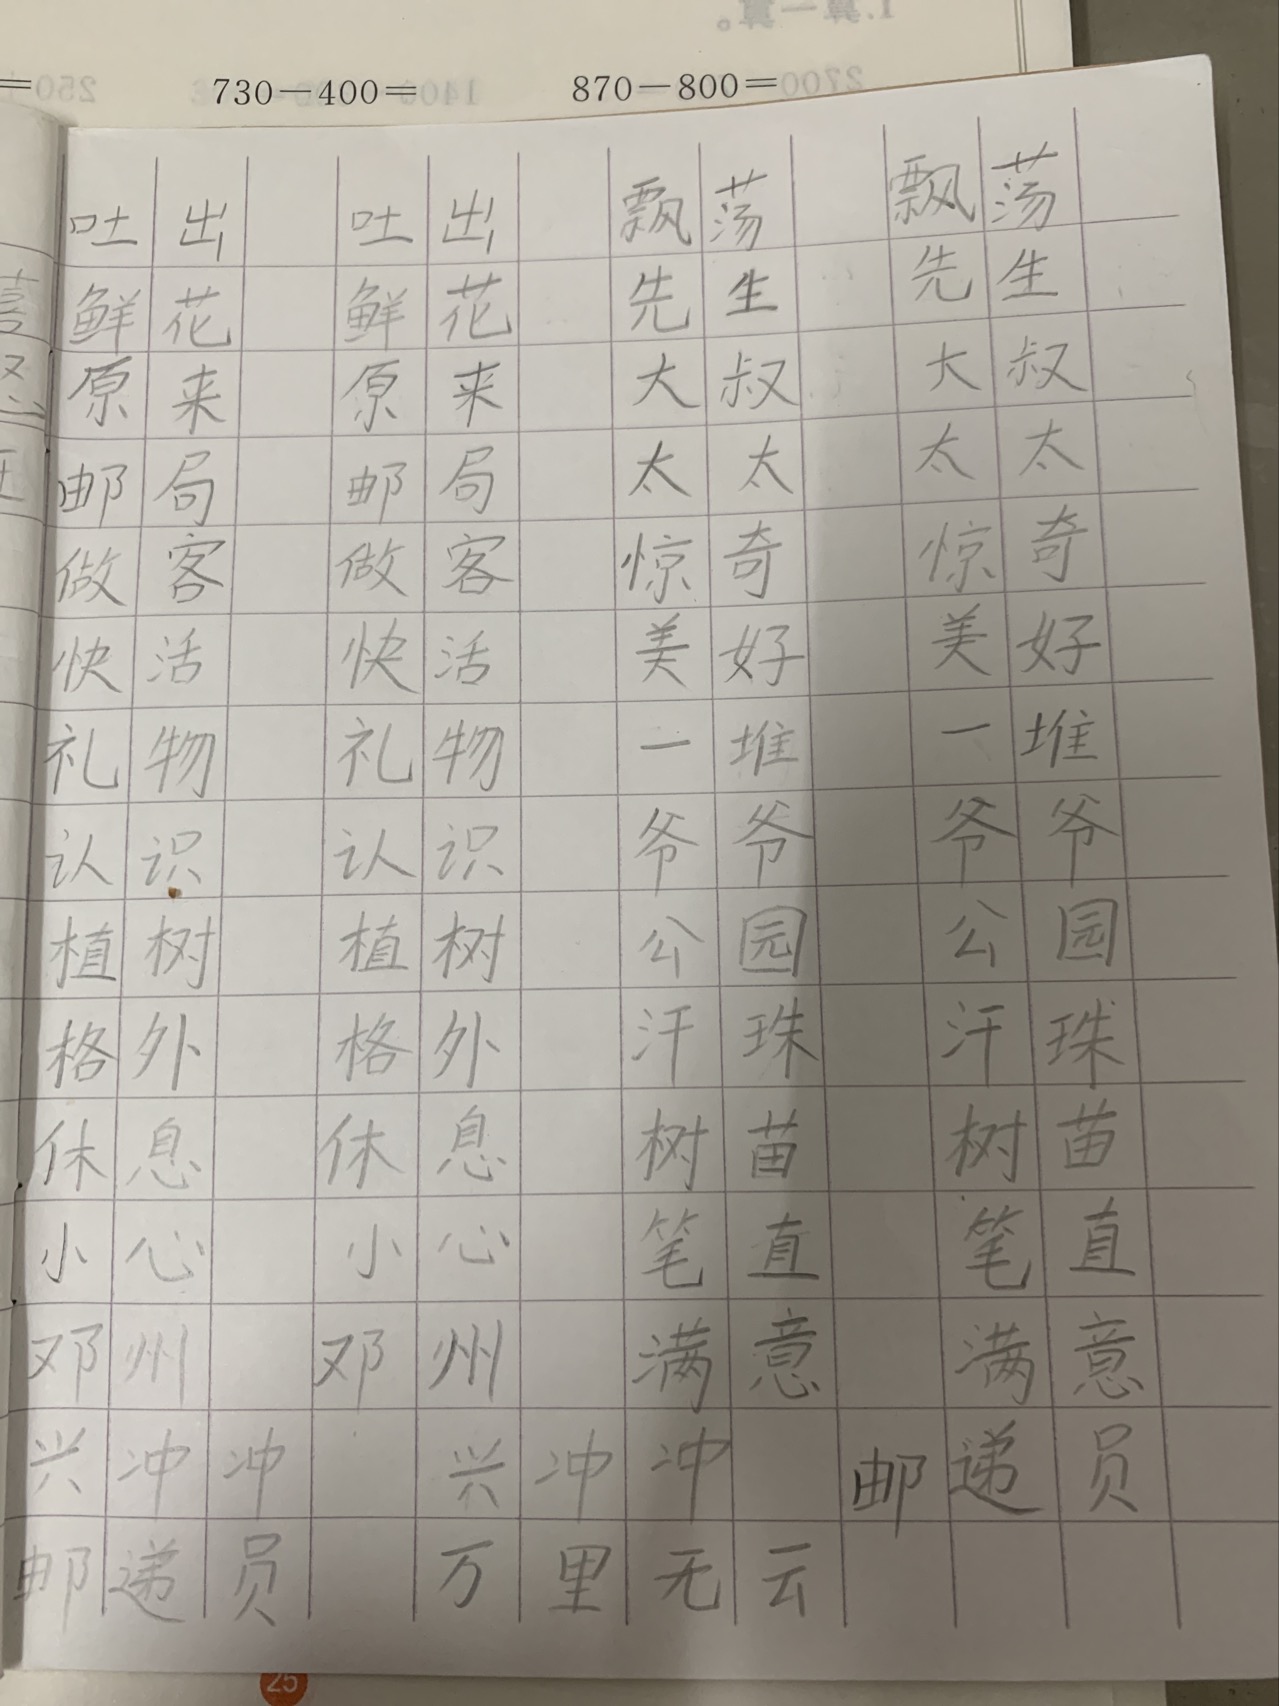 730－400＝ 870－800＝
吐出 吐出 飘荡 飘荡
鲜花 鲜花 先生 先生
原来 原来 大叔 大叔
邮局 邮局 太太 太太
做客 做客 惊奇 惊奇
快活 快活 美好 美好
礼物 礼物 一堆 一堆
认识 认识 爷爷 爷爷
植树 植树 公园 公园
格外 格外 汗珠 汗珠
休息 休息 树苗 树苗
小心 小心 笔直 笔直
邓州 邓州 满意 满意
兴冲冲 兴冲冲 邮递员
邮递员 万里无云
25